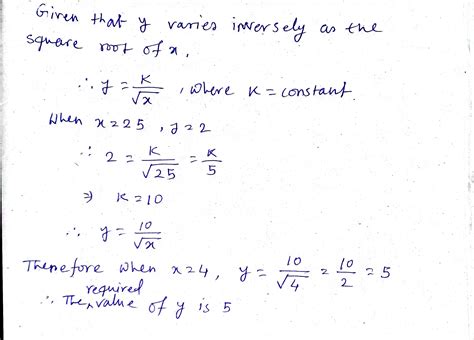 Given that y varies inversely as the
square root of x,
∴ y = K/√x , where K = constant.
When x = 25 , y = 2
∴ 2 = K/√25 = K/5
⇒ K = 10
∴ y = 10/√x
Therefore when x = 4, y = 10/√4 = 10/2 = 5
∴ The required value of y is 5